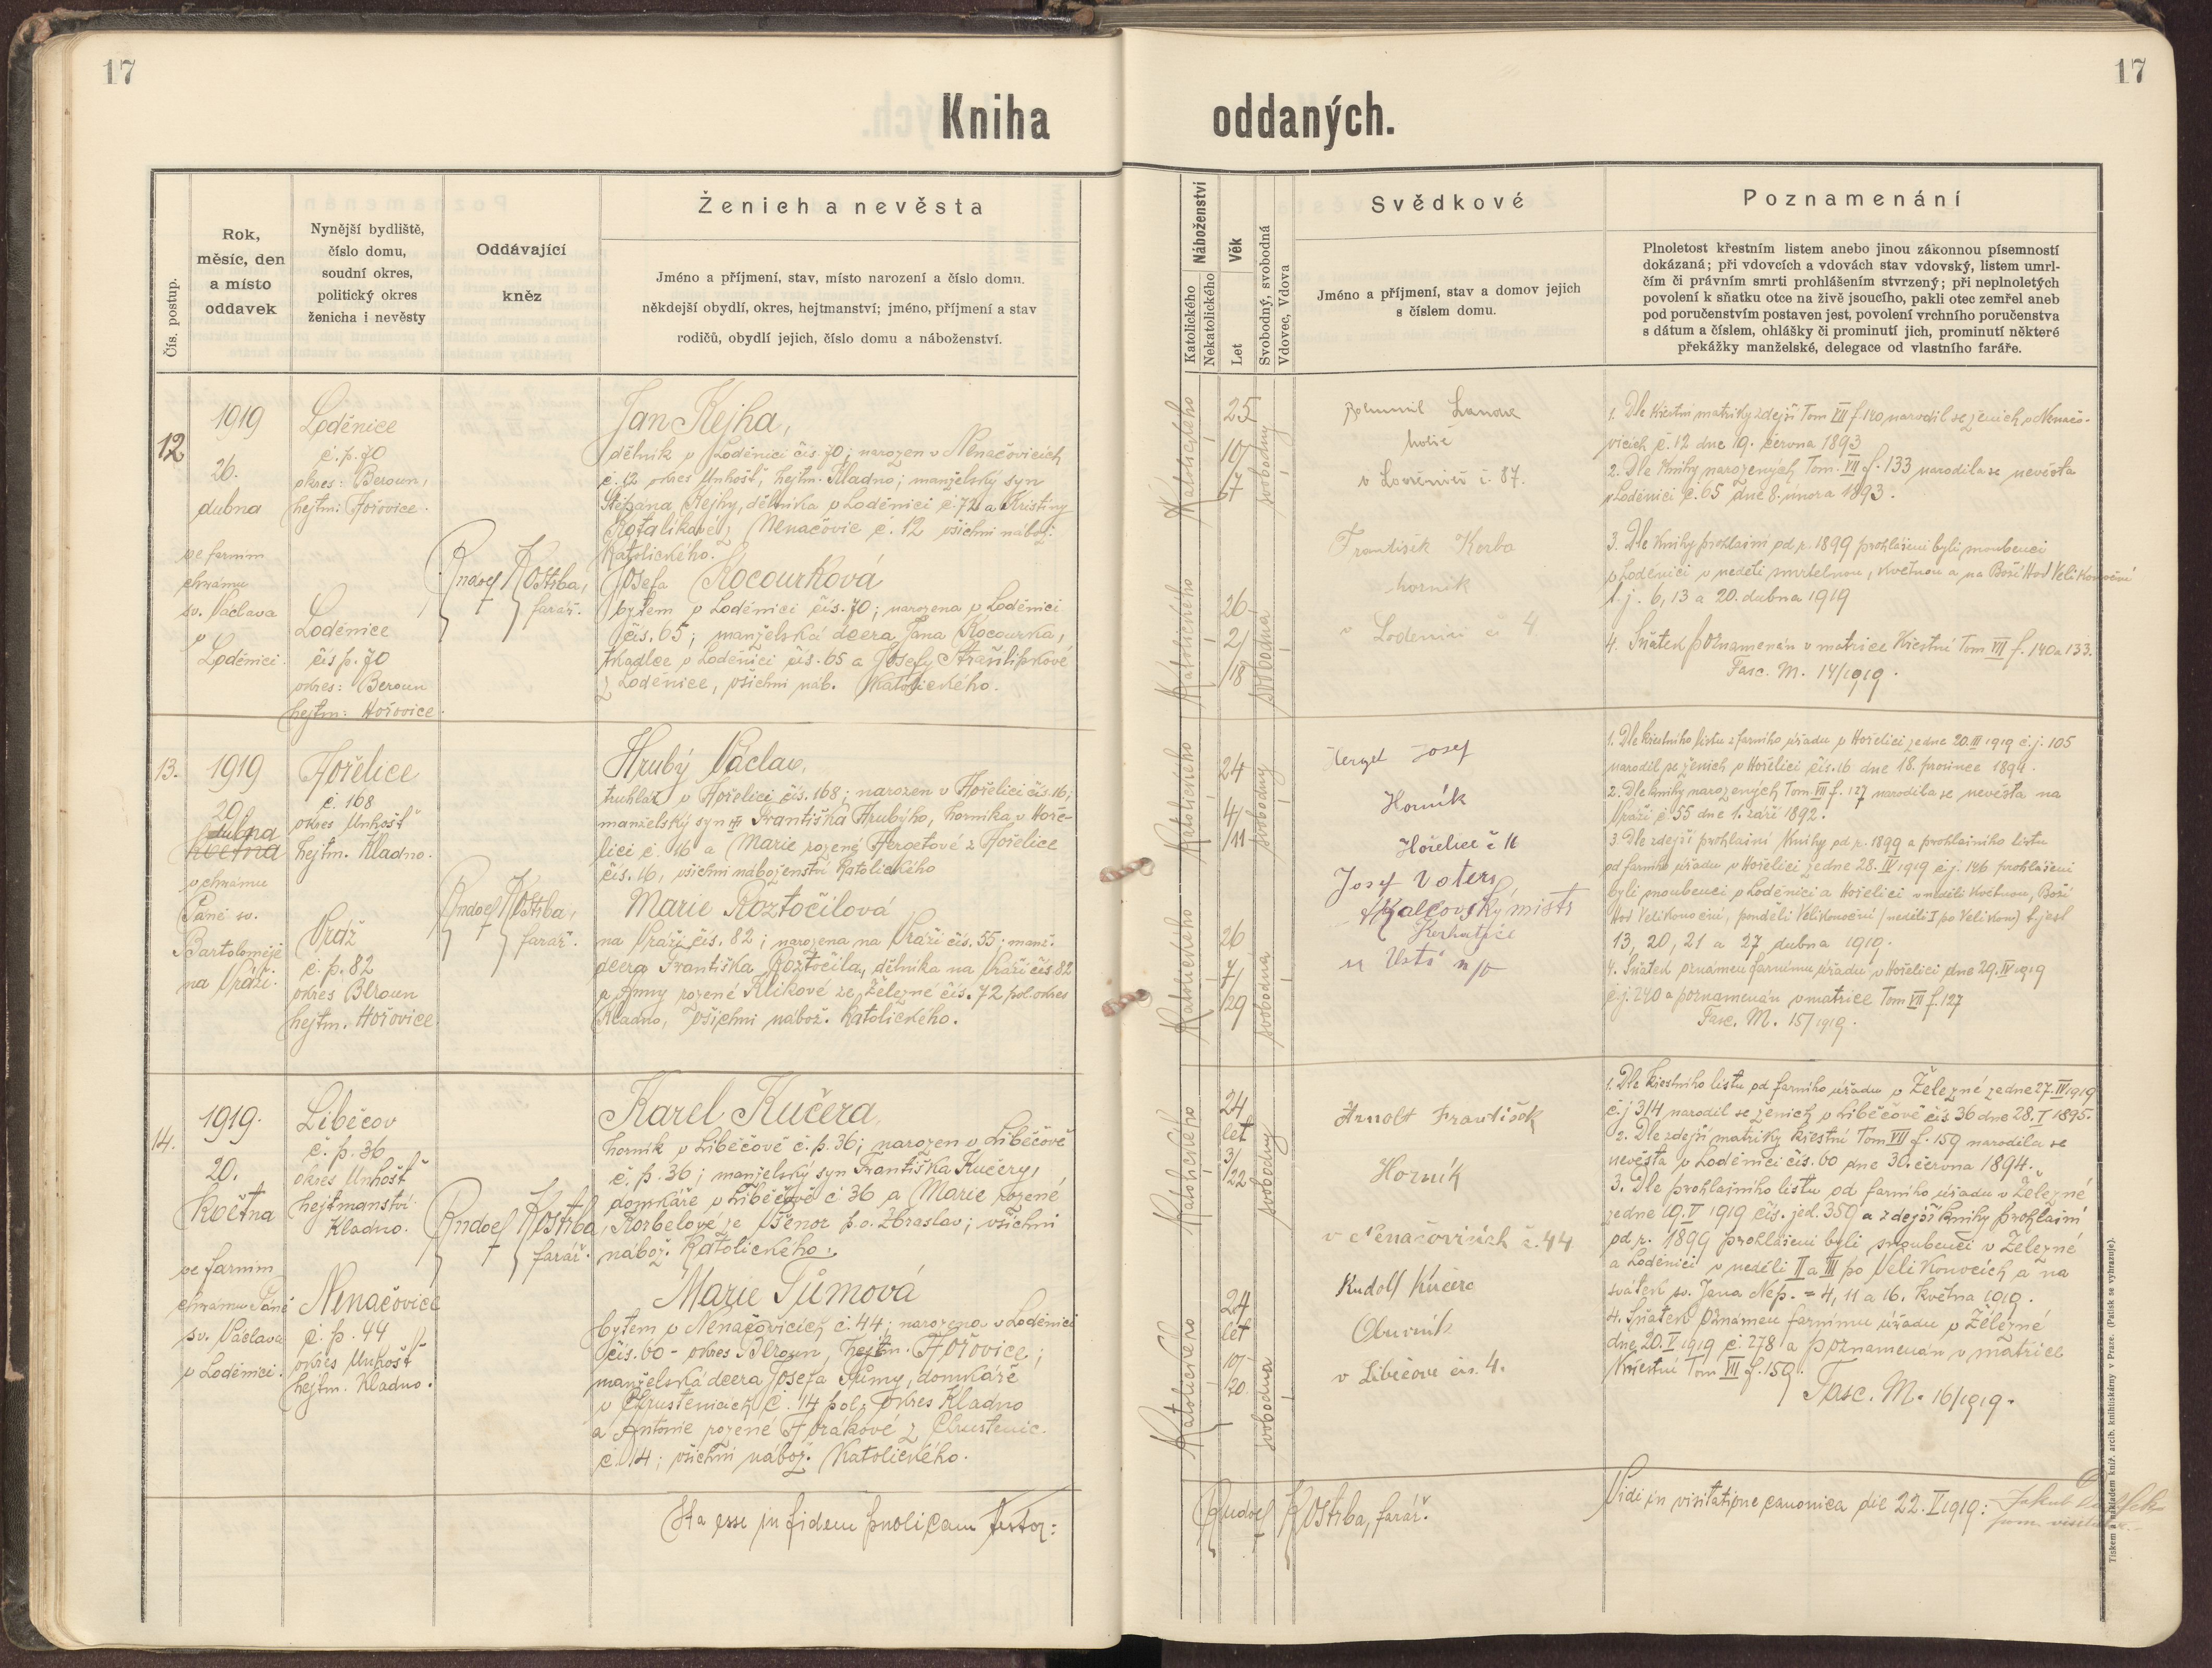 17
17
Kniha oddaných.
Čís. postup.
Rok,
měsíc, den
a místo
oddavek
Nynější bydliště,
číslo domu,
soudní okres,
politický okres
ženicha i nevěsty
Oddávající
kněz
Ženich a nevěsta
Jméno a příjmení, stav, místo narození a číslo domu.
někdejší obydlí, okres, hejtmanství; jméno, příjmení a stav
rodičů, obydlí jejich, číslo domu a náboženství.
Náboženství
Katolického
Nekatolického
Věk
Let
Svobodný, svobodná
Vdovec, Vdova
Svědkové
Jméno a příjmení, stav a domov jejich
s číslem domu.
Poznamenání
Plnoletost křestním listem anebo jinou zákonnou písemností
dokázaná; při vdovcích a vdovách stav vdovský, listem umrl-
čím či právním smrti prohlášením stvrzený; při neplnoletých
povolení k sňatku otce na živě jsoucího, pakli otec zemřel aneb
pod poručenstvím postaven jest, povolení vrchního poručenstva
s dátum a číslem, ohlášky či prominutí jich, prominutí některé
překážky manželské, delegace od vlastního faráře.
12
1919
26.
dubna
ve farním
chrámu
sv. Václava
v
Loděnici.
Loděnice
č. p. 70
okres: Beroun,
hejtm: Hořovice.
Loděnice
čís p. 70
okres: Beroun
hejtm: Hořovice.
Rudolf Kostrba,
farář.
Jan Rejha,
dělník v Loděnici čís. 70; narozen v Nenačovicích
č. 12 okres Unhošť, hejtm. Kladno; manželský syn
Štěpána Rejhy, dělníka v Loděnici č. 72 a Kristiny
z Nenačovic č. 12 všichni nábož.
Katolického.
Josefa Kocourková
bytem v Loděnici čís. 70; narozena v Loděnici
čís. 65; manželská dcera Jana Kocourka,
tkadlce v Loděnici čís. 65 a Josefy
z Loděnice, všichni náb. Katolického.
Katolického
25
10/
/7
svobodný
Katolického
26
2/
/18
svobodná
Bohumil
holič
v Loděnici č. 87.
František Kerba
horník
v Loděnici č 4
1. Dle křestní matriky zdejší Tom VII f. 140 narodil se ženich v Nenačo-
vicích č. 12 dne 19. června 1893
2. Dle knihy narozených Tom. VII f. 133 narodila se nevěsta
v Loděnici č. 65 dne 8. února 1893.
3. Dle knihy prohlášní od r. 1899 prohlášeni byli snoubenci
v Loděnici v neděli smrtelnou, květnou a na Boží Hod Velikonoční
t. j. 6, 13 a 20. dubna 1919
4. Sňatek poznamenán v matrice křestní Tom VII f. 140 a 133.
Fasc. M. 14/1919.
13.
1919
20
dubna
května
v chrámu
Páně sv.
Bartoloměje
na Vráži.
Hořelice
č. 168
okres Unhošť
hejtm. Kladno.
Vráž
č. p. 82
okres Beroun
hejtm. Hořovice.
Rudolf Kostrba,
farář.
Hrubý Václav,
truhlář v Hořelici čís. 168; narozen v Hořelici čís 16;
manželský syn Františka Hrubýho, horníka v Hoře-
lici č. 16 a Marie rozené Hergetové z Hořelice
čís. 16, všichni náboženství Katolického
Marie Roztočilová
na Vráži čís. 82; narozena na Vráži čís. 55; manž.
dcera Františka Roztočila, dělníka na Vráži čís 82
a Anny rozené Klikové ze Železné čís. 72 pol. okres
Kladno, všichni nábož. Katolického.
Katolického
24
4/
/11
svobodný
Katolického
26
7/
/29
svobodná
Herget Josef
Horník
Hořelice č 16
Josef
mistr
v Ústí n/
1. Dle křestního listu z farního úřadu v Hořelici ze dne 20. III 1919 č. j. 105
narodil se ženich v Hořelici čís. 16 dne 18. prosince 1894.
2. Dle knihy narozených Tom. VII f. 127 narodila se nevěsta na
Vráži č 55 dne 1. září 1892.
3 Dle zdejší prohlášní knihy od r. 1899 a prohlášního listu
od farního úřadu v Hořelici ze dne 28. IV 1919 č. j. 146 prohlášeni
byli snoubenci v Loděnici a Hořelici v neděli květnou, Boží
Hod Velikonoční, pondělí Velikonoční (neděli I. po Velikon) t. jest
13, 20, 21 a 27 dubna 1919.
4. Sňatek oznámen farnímu úřadu v Hořelici dne 29. IV 1919
č. j. 240 a poznamenán v matrice Tom VII f. 127
Fasc. M. 15/1919.
14.
1919.
20.
Května
ve farním
chrámu Páně
sv. Václava
v Loděnici.
Libečov
č. p. 36
okres Unhošť
hejtmanství
Kladno.
Nenačovice
č. p. 44
okres Unhošť
hejtm. Kladno.
Rudolf Kostrba,
farář.
Karel Kučera,
horník v Libečově č. p. 36; narozen v Libečově
č. p. 36; manželský syn Františka Kučery,
domkáře v Libečově č 36 a Marie rozené
Korbelové ze Všenor p. o. Zbraslav; všichni
nábož. Katolického.
Marie Tůmová
bytem v Nenačovicích č. 44; narozena v Loděnici
čís. 60 - okres Beroun, hejtm. Hořovice;
manželská dcera Josefa Tůmy, domkáře
v Chrustenicích č. 14 pol. okres Kladno
a Antonie rozené Horákové z Chrustenic
č. 14; všichni nábož. Katolického.
Katolického
24
let
3/
/22
svobodný
Katolického
24
let
10/
/20
svobodná
Arnolt František
Horník
v Nenačovicích č. 44
Rudolf Kučera
Obuvník
v Libečově čís. 4.
1. Dle křestního listu od farního úřadu v Železné ze dne 27. III 1919
č. j 314 narodil se ženich v Libečově čís 36 dne 28. I 1895.
2. Dle zdejší matriky křestní Tom VII f. 159 narodila se
nevěsta v Loděnici čís. 60 dne 30. června 1894.
3. Dle prohlašního listu od farního úřadu v Železné
ze dne 19. V 1919 čís. jed. 359 a zdejší knihy prohlašní
od r. 1899 prohlášeni byli snoubenci v Železné
a Loděnici v neděli II a III po Velikonocích a na
svátek sv. Jana Nep. = 4, 11 a 16. května 1919.
4. Sňatek oznámen farnímu úřadu v Železné
dne 20. V 1919 č. 278 a poznamenán v matrice
křestní Tom VII f. 159.
Fasc. M. 16/1919.
Ita esse in fidem publicam testor:
Rudolf Kostrba, farář.
Vidi in visitatione canonica die 22. V 1919: Jakub
Tiskem a nákladem kníž. arcib. knihtiskárny v Praze. (Patisk se vyhrazuje).